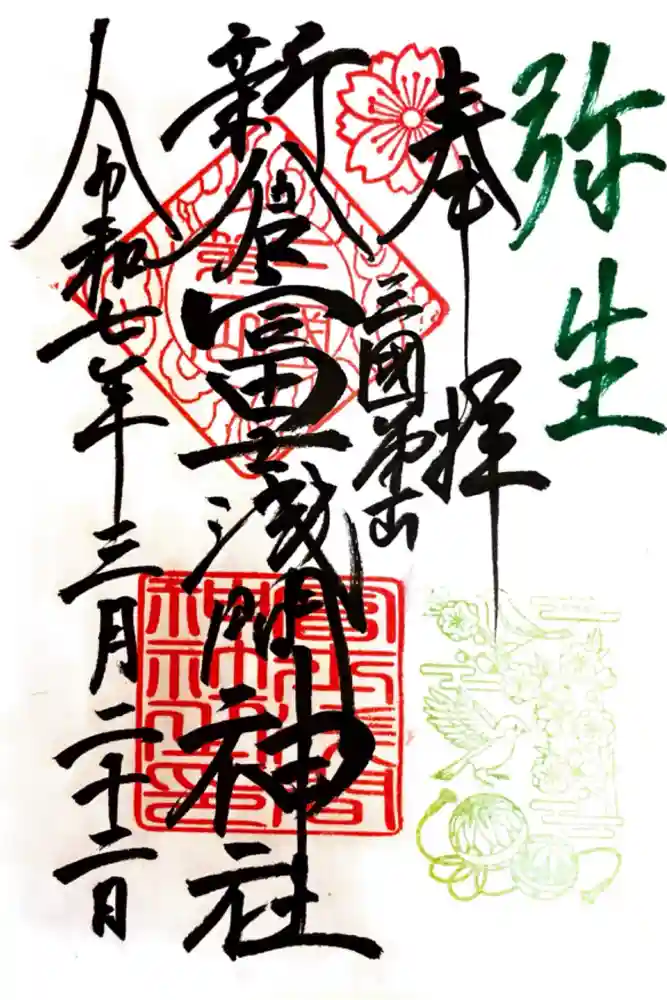 弥生
奉拝
三國第一山
新倉富士浅間神社
令和七年三月二十二日